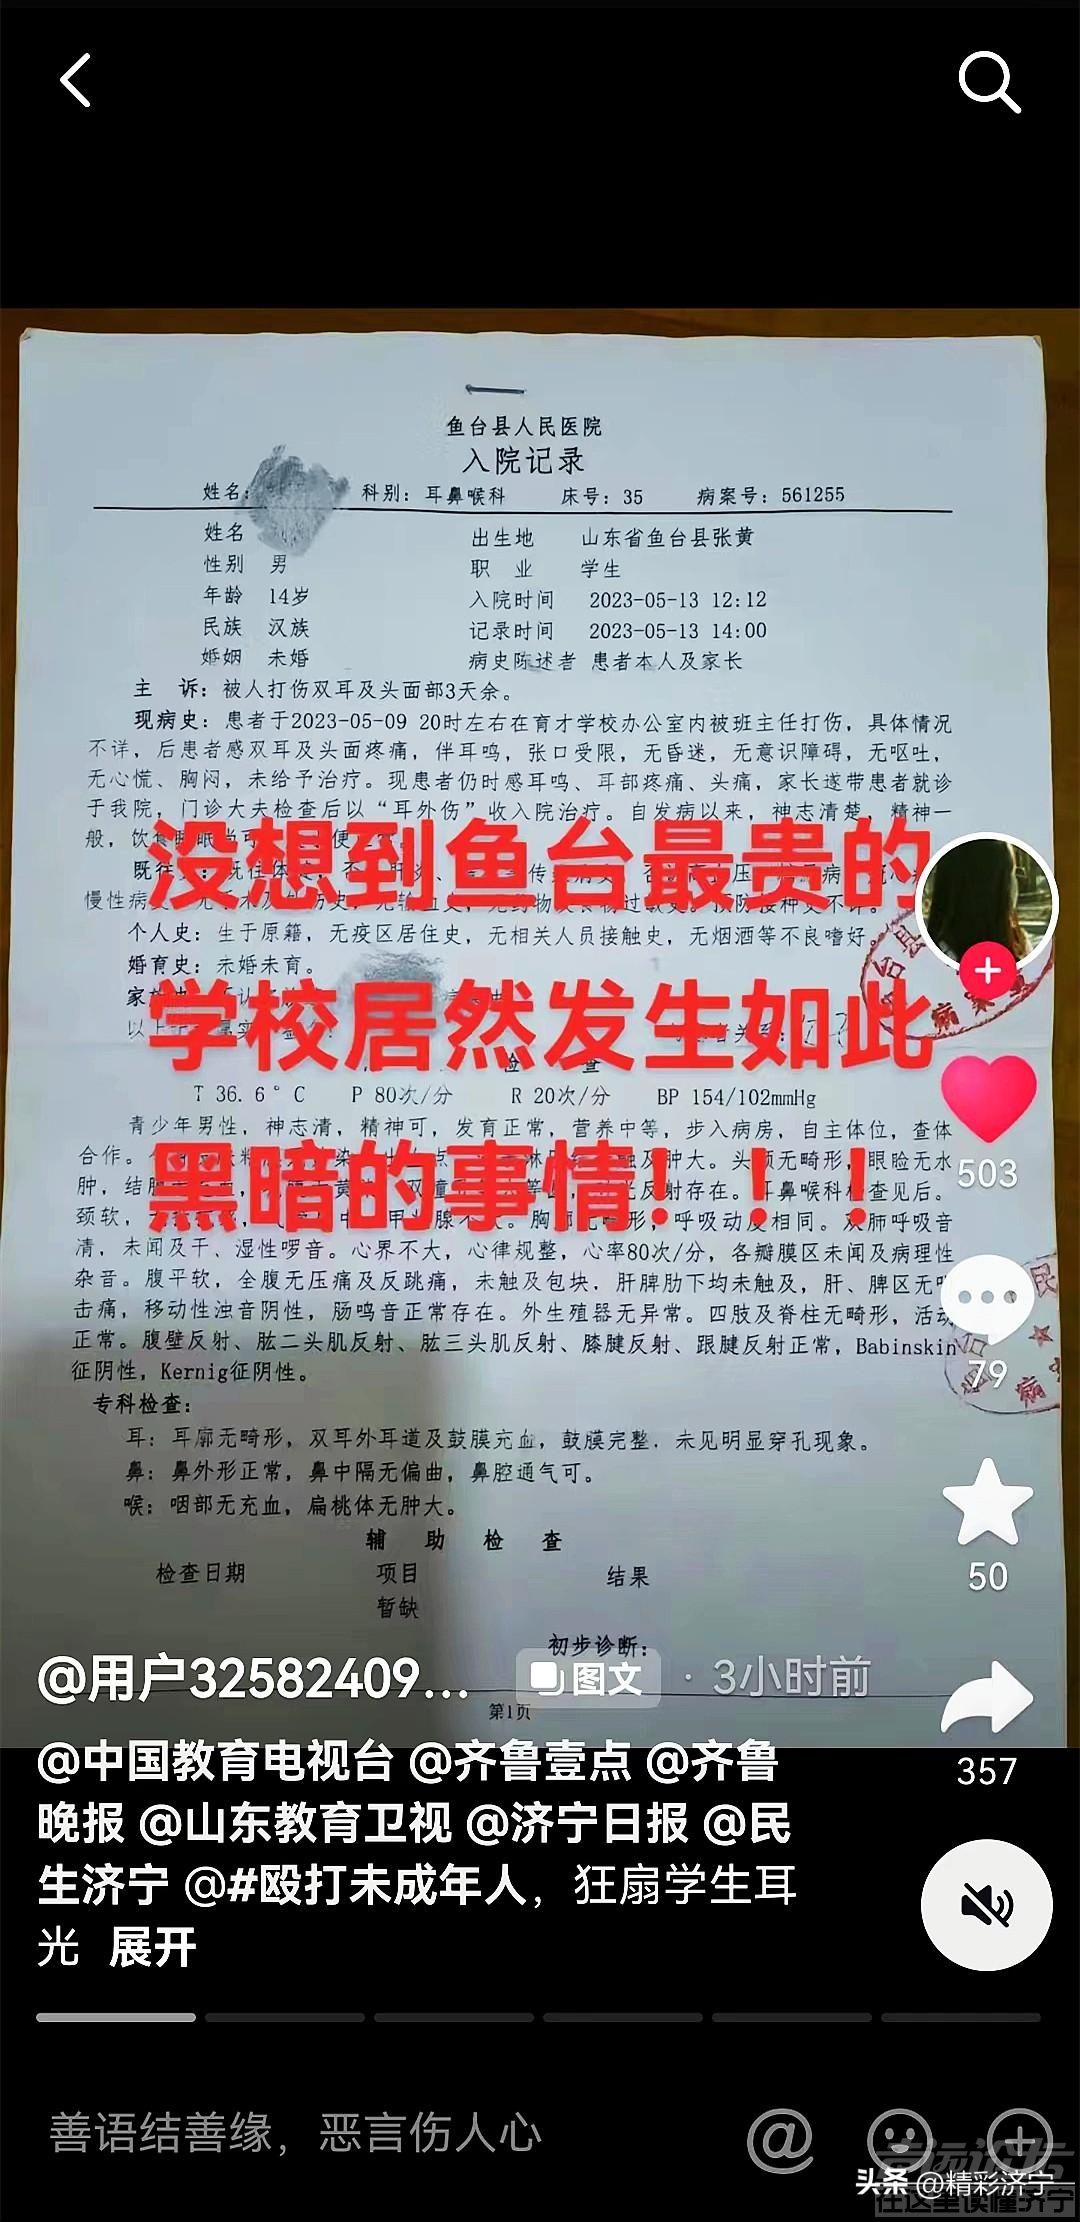 鱼台县人民医院
入院记录
姓名: 科别: 耳鼻喉科 床号: 35 病案号: 561255
姓名 出生地 山东省鱼台县张黄
性别 男 职 业 学生
年龄 14岁 入院时间 2023-05-13 12:12
民族 汉族 记录时间 2023-05-13 14:00
婚姻 未婚 病史陈述者 患者本人及家长
主 诉: 被人打伤双耳及头面部3天余。
现病史: 患者于2023-05-09 20时左右在育才学校办公室内被班主任打伤, 具体情况
不详, 后患者感双耳及头面疼痛, 伴耳鸣, 张口受限, 无昏迷, 无意识障碍, 无呕吐,
无心慌、胸闷, 未给予治疗。现患者仍时感耳鸣、耳部疼痛、头痛, 家长遂带患者就诊
于我院, 门诊大夫检查后以“耳外伤”收入院治疗。自发病以来, 神志清楚, 精神一
般, 饮食睡眠尚可
没想到鱼台最贵的
慢性病
个人史: 生于原籍, 无疫区居住史, 无相关人员接触史, 无烟酒等不良嗜好。
婚育史: 未婚未育。
学校居然发生如此
检 查
T 36.6°C P 80次/分 R 20次/分 BP 154/102mmHg
青少年男性, 神志清, 精神可, 发育正常, 营养中等, 步入病房, 自主体位, 查体
合作。 触及肿大。头颅无畸形, 眼睑无水
黑暗的事情！！！
肿, 反射存在。耳鼻喉科检查见后。
颈软, 呼吸动度相同。双肺呼吸音
清, 未闻及干、湿性啰音。心界不大, 心律规整, 心率80次/分, 各瓣膜区未闻及病理性
杂音。腹平软, 全腹无压痛及反跳痛, 未触及包块. 肝脾肋下均未触及, 肝、脾区无叩
击痛, 移动性浊音阴性, 肠鸣音正常存在。外生殖器无异常。四肢及脊柱无畸形, 活动
正常。腹壁反射、肱二头肌反射、肱三头肌反射、膝腱反射、跟腱反射正常, Babinskin
征阴性, Kernig征阴性。
专科检查:
耳: 耳廓无畸形, 双耳外耳道及鼓膜充血, 鼓膜完整. 未见明显穿孔现象。
鼻: 鼻外形正常, 鼻中隔无偏曲, 鼻腔通气可。
喉: 咽部无充血, 扁桃体无肿大。
辅 助 检 查
检查日期 项目 结果
暂缺
初步诊断:
第1页
503
79
50
357
@用户32582409... 图文 · 3小时前
@中国教育电视台 @齐鲁壹点 @齐鲁
晚报 @山东教育卫视 @济宁日报 @民
生济宁 @#殴打未成年人，狂扇学生耳
光 展开
善语结善缘，恶言伤人心
头条 @精彩济宁
在这里读懂济宁